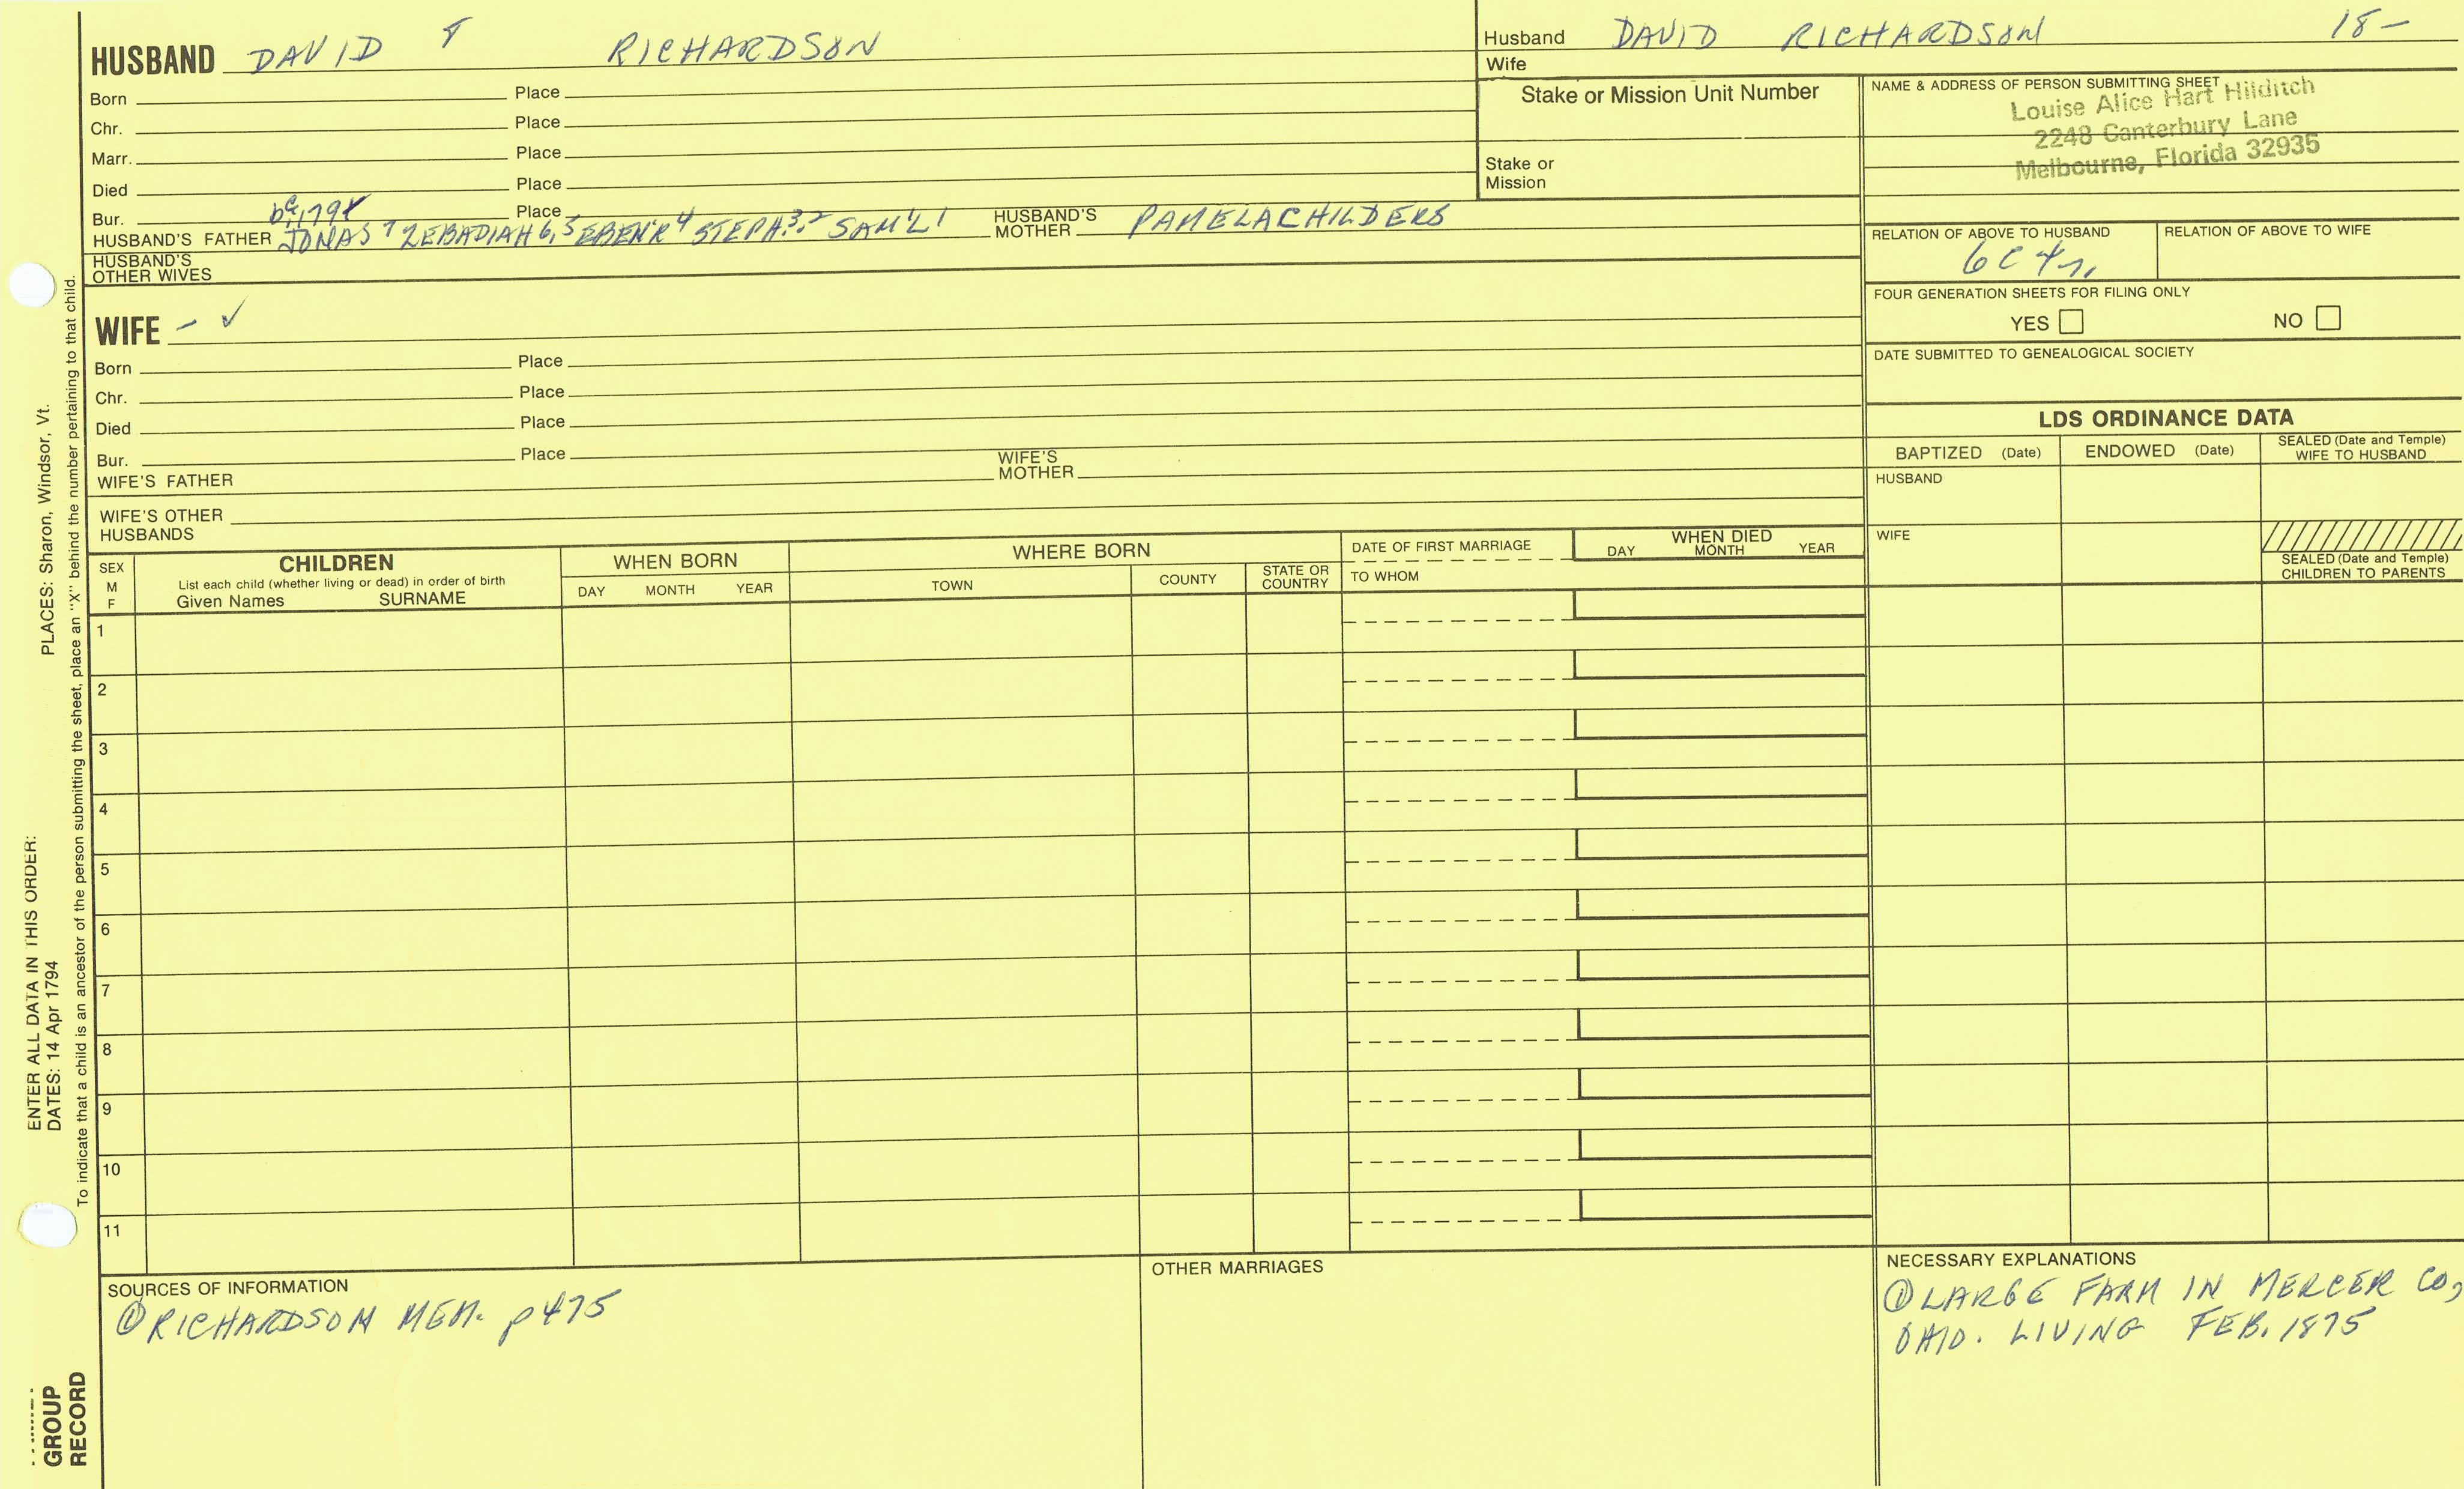 HUSBAND DAVID 8 RICHARDSON
Born Place
Chr. Place
Marr. Place
Died Place
Bur. Place
HUSBAND'S FATHER JONAS 7 ZEBADIAH 6,5 EBEN'R 4 STEPH 3,2 SAM'L 1 HUSBAND'S MOTHER PAMELA CHILDERS
HUSBAND'S OTHER WIVES
WIFE - ✓
Born Place
Chr. Place
Died Place
Bur. Place
WIFE'S FATHER WIFE'S MOTHER
WIFE'S OTHER HUSBANDS
Husband DAVID RICHARDSON 18-
Wife
Stake or Mission Unit Number
Stake or Mission
NAME & ADDRESS OF PERSON SUBMITTING SHEET
Louise Alice Hart Hilditch
2248 Canterbury Lane
Melbourne, Florida 32935
RELATION OF ABOVE TO HUSBAND RELATION OF ABOVE TO WIFE
6C 4r.
FOUR GENERATION SHEETS FOR FILING ONLY
YES NO
DATE SUBMITTED TO GENEALOGICAL SOCIETY
LDS ORDINANCE DATA
BAPTIZED (Date) ENDOWED (Date) SEALED (Date and Temple) WIFE TO HUSBAND
HUSBAND
WIFE
SEALED (Date and Temple) CHILDREN TO PARENTS
SEX M F CHILDREN
List each child (whether living or dead) in order of birth
Given Names SURNAME
WHEN BORN
DAY MONTH YEAR
WHERE BORN
TOWN COUNTY STATE OR COUNTRY
DATE OF FIRST MARRIAGE
TO WHOM
WHEN DIED
DAY MONTH YEAR
1
2
3
4
5
6
7
8
9
10
11
SOURCES OF INFORMATION
① RICHARDSON MEM. p475
OTHER MARRIAGES
NECESSARY EXPLANATIONS
① LARGE FARM IN MERCER CO,
OHIO. LIVING FEB. 1875
ENTER ALL DATA IN THIS ORDER:
DATES: 14 Apr 1794 PLACES: Sharon, Windsor, Vt.
To indicate that a child is an ancestor of the person submitting the sheet, place an "X" behind the number pertaining to that child.
GROUP
RECORD